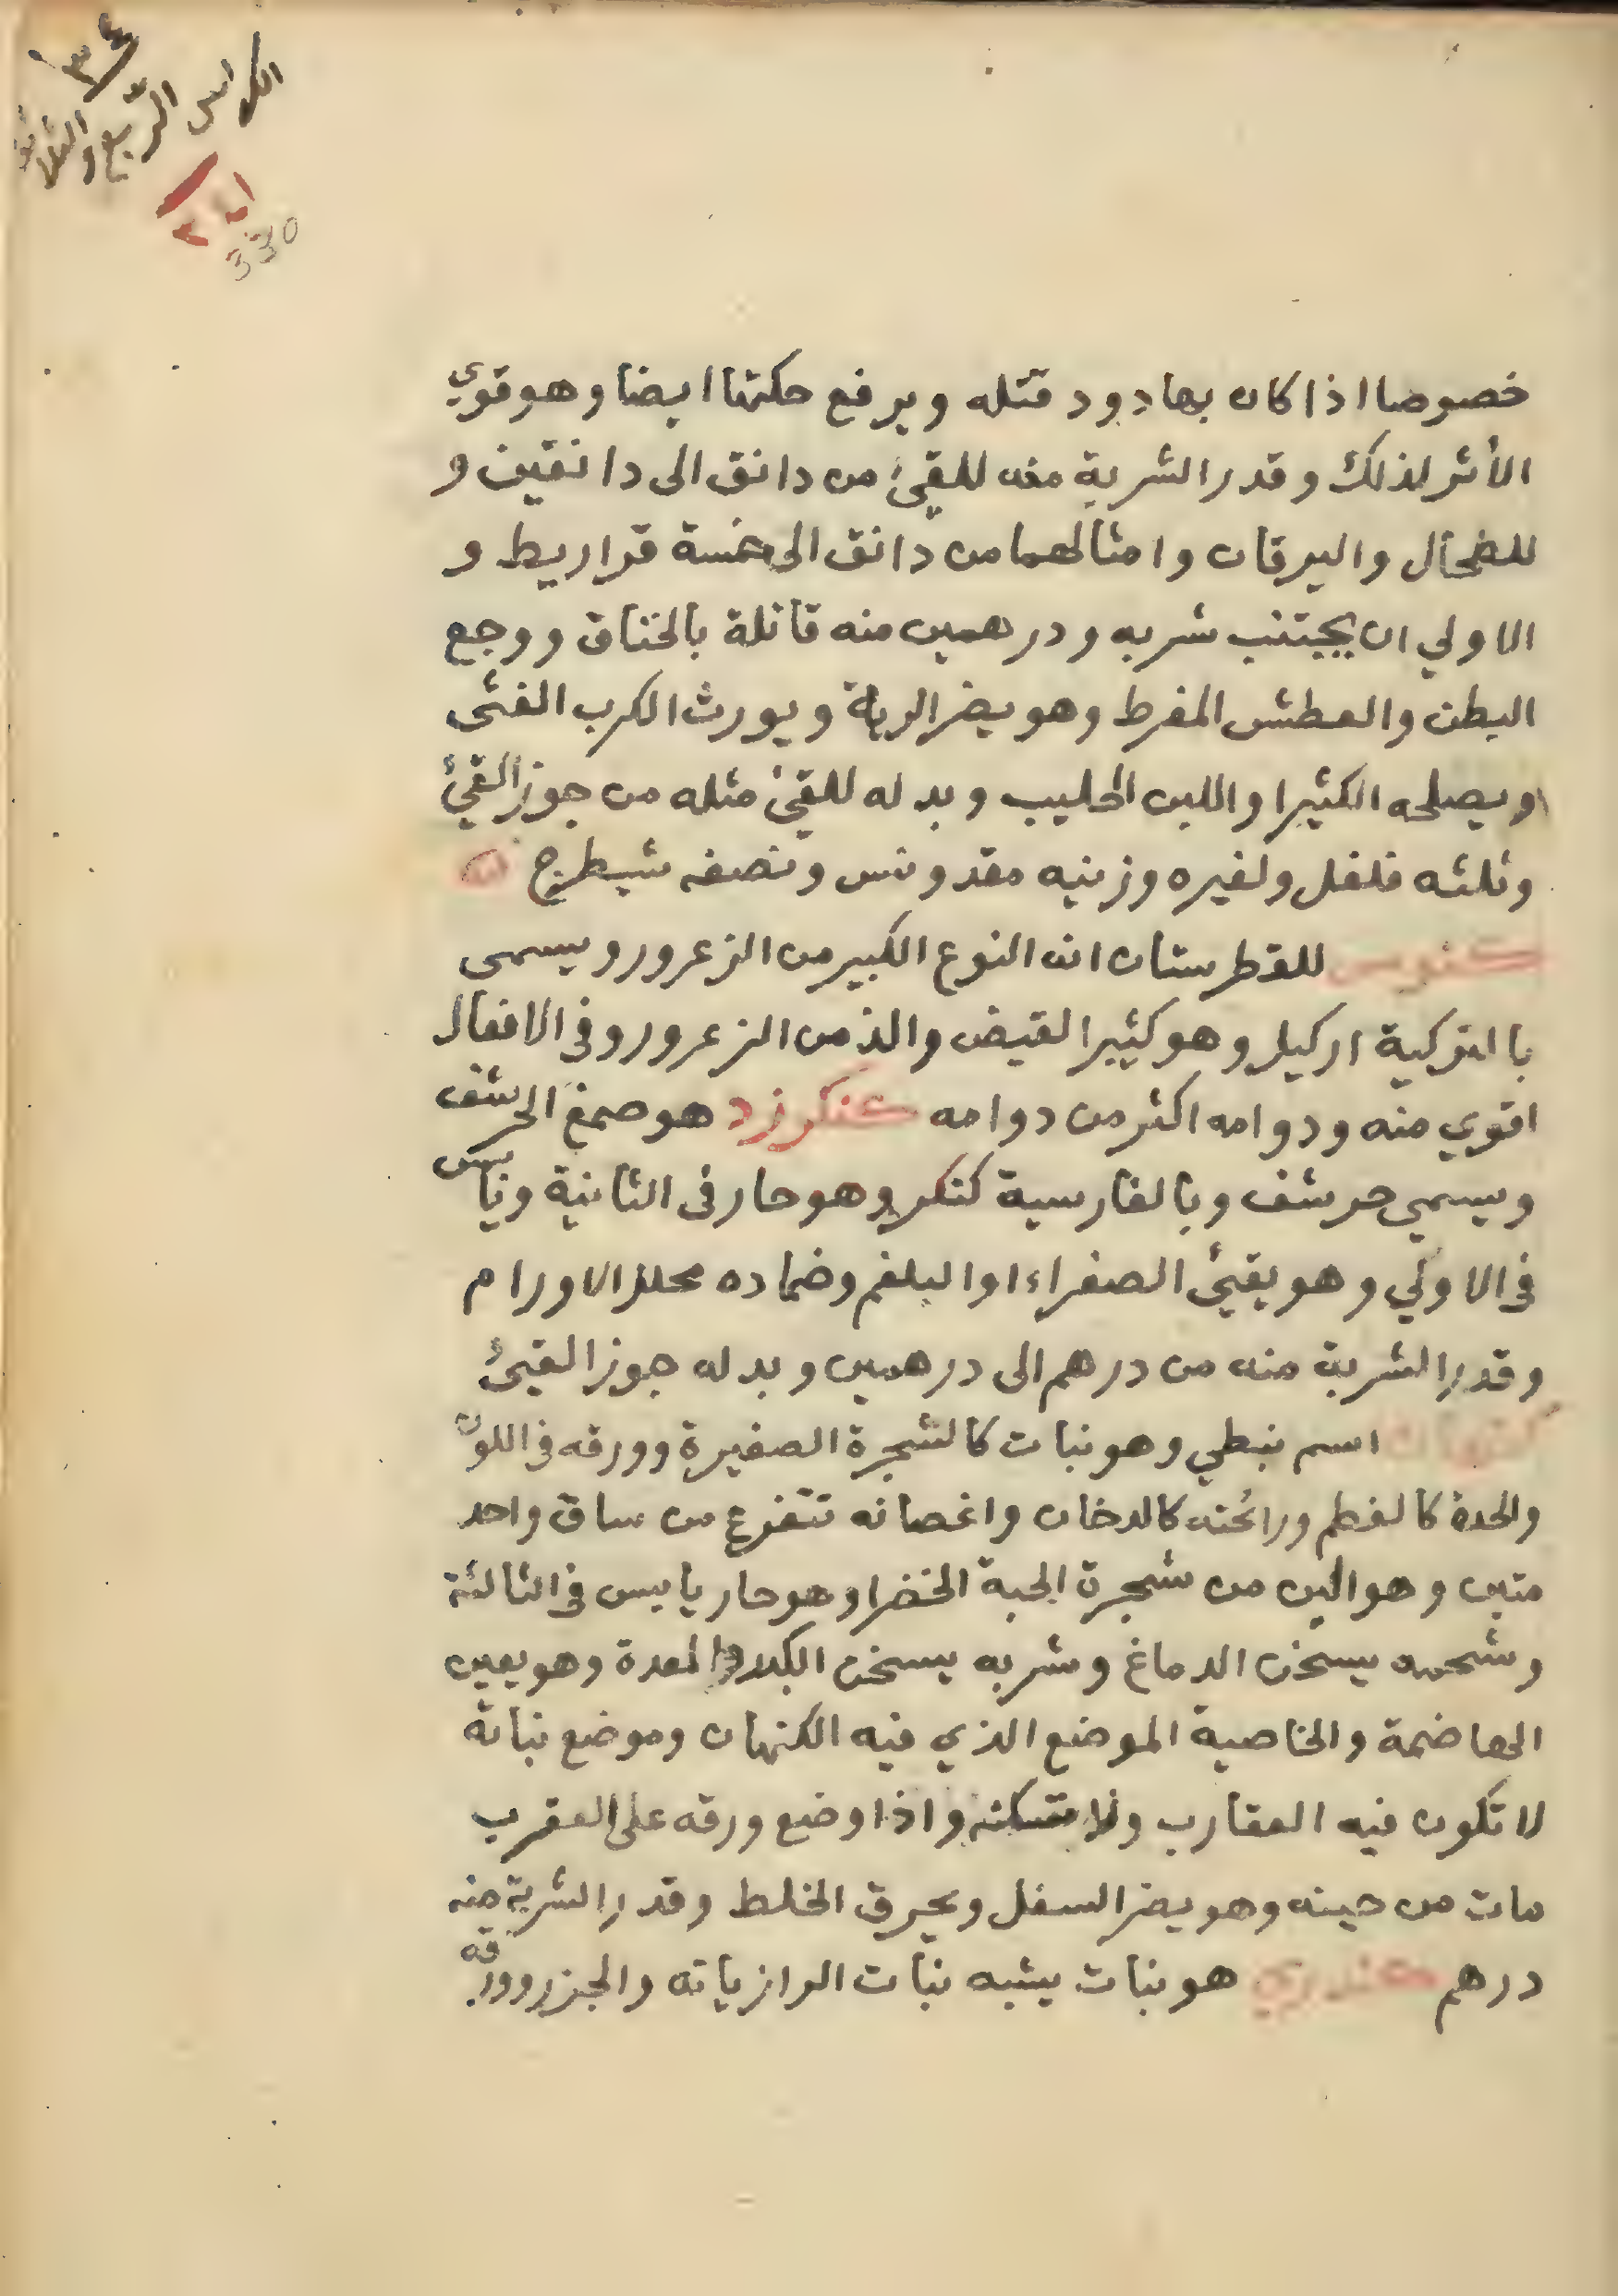 ٣٤
الكراس الرابع والثلاثو
330
خصوصا اذا كان بها دود قتله ويرفع حكتها ايضا وهو قوي
الأثر لذلك وقدر الشربة منه للقئ من دانق الى دانقين و
للطحال واليرقان وامثالهما من دانق الى خمسة قراريط و
الاولي ان يجتنب شربه ودرهمين منه قاتلة بالخناق ووجع
البطن والعطش المفرط وهو يضر الرية ويورث الكرب الغثى
ويصلحه الكثيرا واللبن الحليب وبدله للقئ مثله من جوز القئ
وثلثه فلفل ولغيره وزنيه مقدونس ونصفه شيطرج
كنوس للقطرستان انه النوع الكبير من الزعرور ويسمى
بالتركية اركيل وهو كثير القبض والذ من الزعرور وفى الافعال
اقوي منه ودوامه اكثر من دوامه كنكرزد هو صمغ الحرشف
ويسمي حرشف وبالفارسية كنكر وهو حار فى الثانية ويابس
فى الاولي وهو يقيئ الصفراء او البلغم وضماده محلل الاورام
وقدر الشربة منه من درهم الى درهمين وبدله جوز القيئ
اسم نبطي وهو نبات كالشجرة الصغيرة وورقه فى اللون
والحدة كالفطم ورائحته كالدخان واغصانه تتفرع من ساق واحد
متين وهو الين من شجرة الحبة الخضرا وهو حار يابس فى الثالثة
وشحمه يسخن الدماغ وشربه يسخن الكبد والمعدة وهو يعين
الهاضمة والخاصية الموضع الذي فيه الكنهان وموضع نباته
لا تكون فيه العقارب ولا تسكنه واذا وضع ورقه على العقرب
مات من حينه وهو يضر السفل ويحرق الخلط وقدر الشربة منه
درهم كندري هو نبات يشبه نبات الرازيانه والجزر وورقه